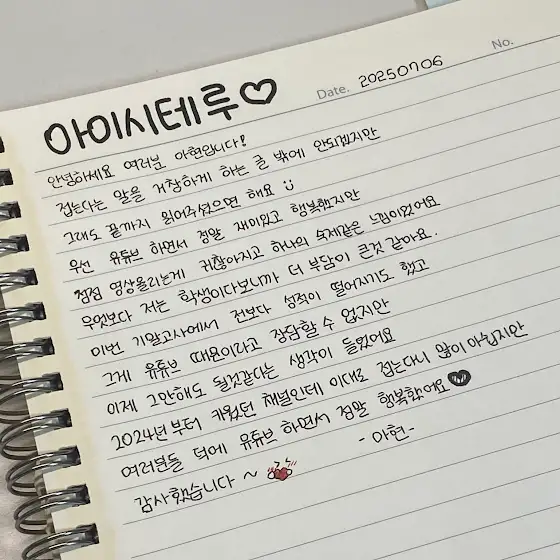 아이시테루♡
Date. 20250706
No.
안녕하세요 여러분 아현입니다!
접는다는 말을 거창하게 하는 글 밖에 안되겠지만
그래도 끝까지 읽어주셨으면 해요 :)
우선 유튜브 하면서 정말 재미있고 행복했지만
점점 영상올리는게 귀찮아지고 하나의 숙제같은 느낌이었어요
무엇보다 저는 학생이다보니까 더 부담이 큰것 같아요.
이번 기말고사에서 전보다 성적이 떨어지기도 했고
그게 유튜브 때문이라고 장담할 수 없지만
이제 그만해도 될것같다는 생각이 들었어요
2024년부터 키웠던 채널인데 이대로 접는다니 많이 아쉽지만
여러분들 덕에 유튜브 하면서 정말 행복했어요♥
감사했습니다 ~
-아현-